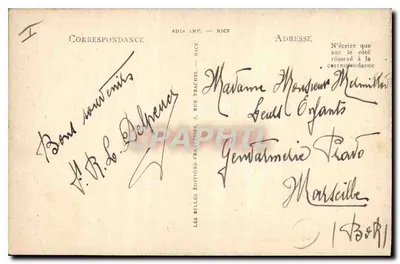 I
ADIA IMP. - NICE
CORRESPONDANCE
ADRESSE
N'écrire que
sur le côté
réservé à la
correspondance
Bons souvenirs
Madame Monsieur
Leurs Enfants
Gendarmerie Prado
Marseille
(B.d.R)
LES BELLES ÉDITIONS FRANÇAISES, 2, RUE TRACHEL - NICE